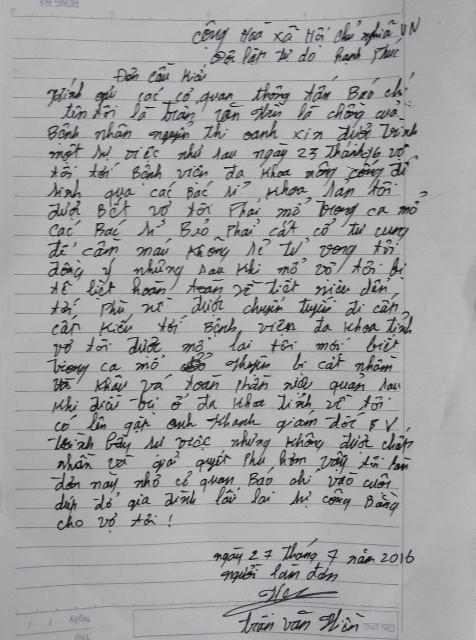 Cộng Hoà Xã Hội chủ nghĩa VN
Độc lập tự do hạnh Phúc
Đơn Cầu Kiếu
Kính gửi các cơ quan thông tấn Báo chí
tên tôi là trần văn Hiền là chồng của
Bệnh nhân nguyễn thị oanh xin được trình
một sự việc như sau ngày 23 tháng 6 vợ
tôi tới Bệnh viện đa khoa nông cống để
sinh qua các Bác sĩ khoa sản tôi
được Biết vợ tôi Phải mổ trong ca mổ
các Bác sĩ Bảo Phải cắt cổ tử cung
để cầm máu không sẽ tử vong tôi
đồng ý nhưng sau khi mổ vợ tôi bị
tê liệt hoàn toàn về tiết niệu dẫn
tới Phù nề được chuyển tuyến đi cấp
cứu tới Bệnh viện đa khoa tỉnh
vợ tôi được mổ lại tôi mới biết
trong ca mổ bị cắt nhầm
và khâu và toàn phần niệu quản sau
khi điều trị ở đa khoa tỉnh về tôi
có lên gặp anh khanh giám đốc BV
trình bày sự việc nhưng không được chấp
nhận và giải quyết Phù hợp vậy tôi làm
đơn này nhờ cơ quan Báo chí vào cuộc
giúp đỡ gia đình lấy lại sự công Bằng
cho vợ tôi !
ngày 27 tháng 7 năm 2016
người làm đơn
trần văn Hiền
Ngày